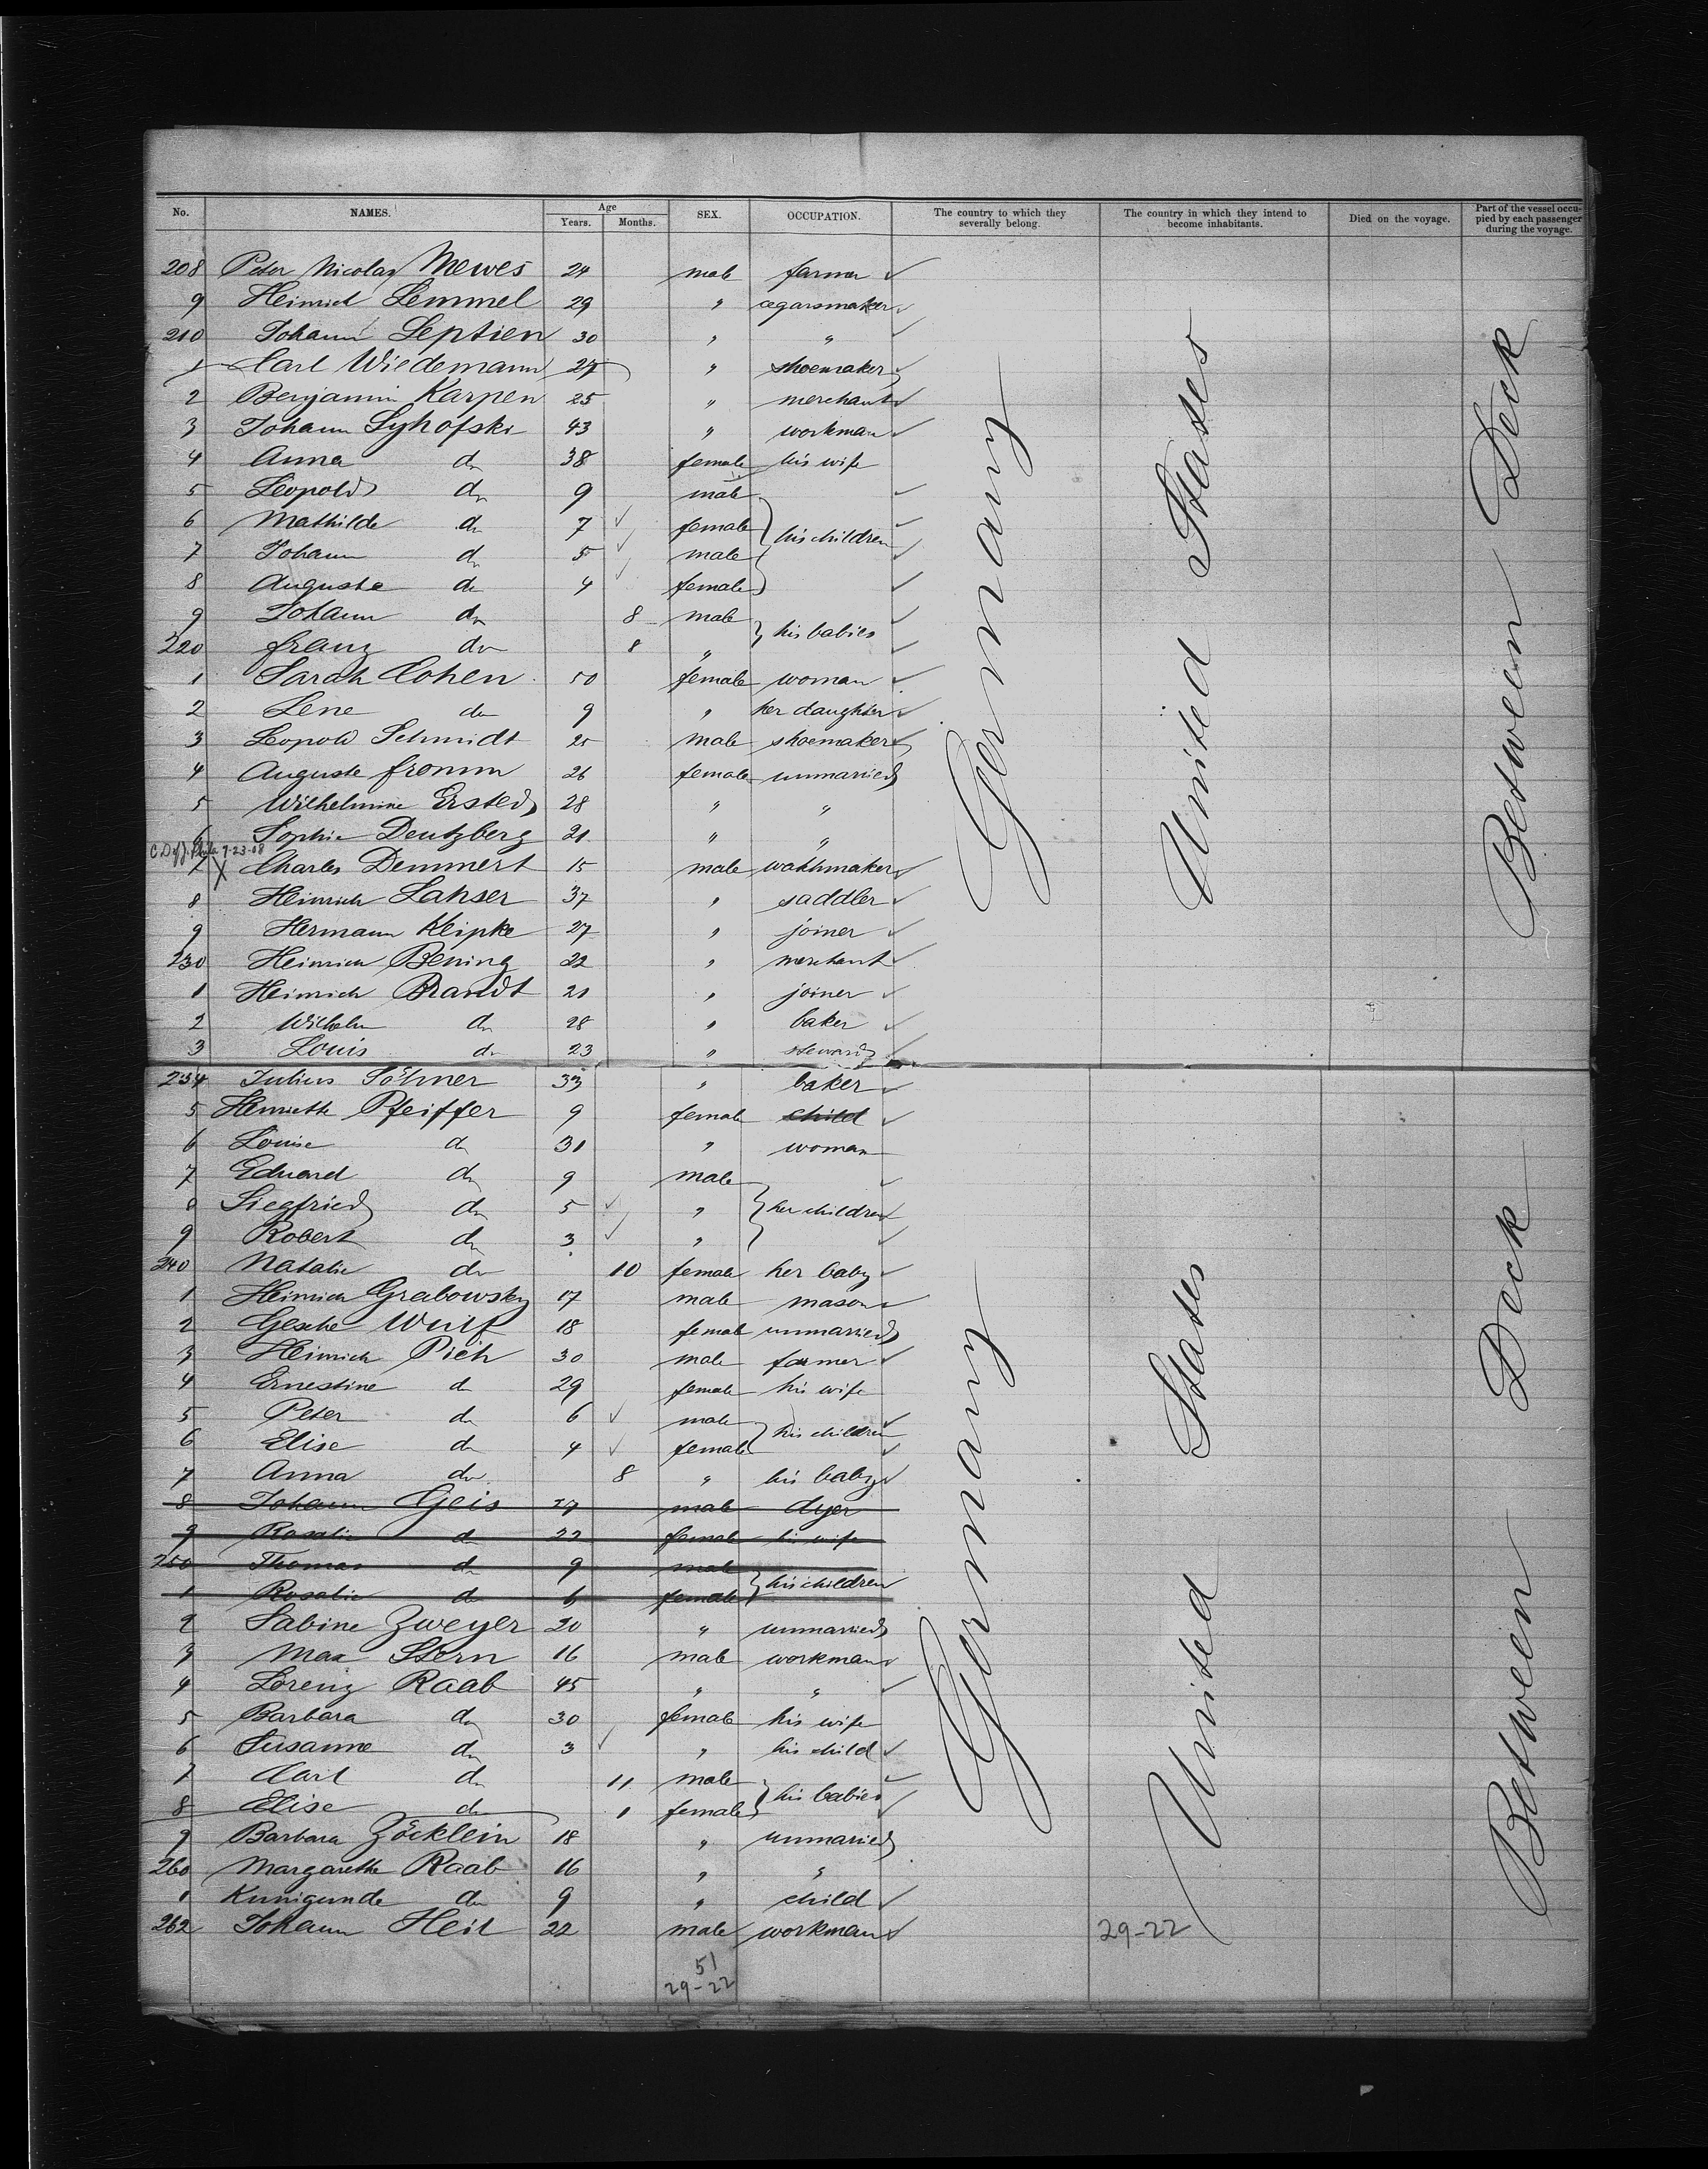 No. NAMES. Age Years. Months. SEX. OCCUPATION. The country to which they severally belong. The country in which they intend to become inhabitants. Died on the voyage. Part of the vessel occupied by each passenger during the voyage.
208 Peter Nicolay Mewes 24 male farmer
9 Heinrich Lemmel 29 " cegarsmaker
210 Johann Septien 30 " "
1 Carl Wiedemann 27 " shoemaker
2 Benjamin Karpen 25 " merchant
3 Johann Syhofski 43 " workman
4 Anna do 38 female his wife
5 Leopold do 9 male
6 Mathilde do 7 female his children
7 Johann do 5 male
8 Auguste do 4 female
9 Johann do 8 male his babies
220 Franz do 8 "
1 Sarah Cohen 50 female woman
2 Lene do 9 " her daughter
3 Leopold Schmidt 25 male shoemaker
4 Auguste Fromm 26 female unmarried
5 Wilhelmine Ersted 28 " "
6 Sophie Deutzberg 21 " "
7-23-08
7 X Charles Demmert 15 male watchmaker
8 Heinrich Lahser 37 " saddler
9 Hermann Kleipke 27 " joiner
230 Heinrich Bening 22 " merchant
1 Heinrich Brandt 21 " joiner
2 Wilhelm do 28 " baker
3 Louis do 23 " steward
234 Julius Söhner 33 " baker
5 Henriette Pfeiffer 9 female child
6 Louise do 31 " woman
7 Eduard do 9 male
8 Siegfried do 5 " her children
9 Robert do 3 "
240 Natalie do 10 female her baby
1 Heinrich Grabowsky 17 male mason
2 Gesche Wulf 18 female unmarried
3 Heinrich Pieh 30 male farmer
4 Ernestine do 29 female his wife
5 Peter do 6 male his children
6 Elise do 4 female
7 Anna do 8 " his baby
8 Johann Geis 27 male dyer
9 Rosalie do 22 female his wife
250 Thomas do 9 male his children
1 Rosalie do 6 female
2 Sabine Zweyer 20 " unmarried
3 Max Stern 16 male workman
4 Lorenz Raab 45 " "
5 Barbara do 30 female his wife
6 Susanne do 3 " his child
7 Carl do 11 male his babies
8 Elise do 1 female
9 Barbara Zöcklein 18 " unmarried
260 Margarethe Raab 16 " "
1 Kunigunde do 9 " child
262 Johann Heil 22 male workman
Germany
United States
Between Deck
Germany
United States
Between Deck
29-22
51
29-22